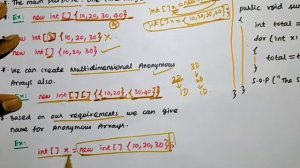 Ex: new int[] {10, 20, 30, 40}
int[] x = {10, 20, 30, 40};
new int[3] {10, 20, 30} x
new int[] {10, 20, 30}
* We can create Multidimensional Anonymous 3D
Arrays also. 2D 2D
Ex: new int[][] {{10, 20}, {30, 40}} 1D 1D
Based on our requirements we can give
name for Anonymous Arrays.
Ex:
int[] x = new int[] {10, 20, 30};
public void su
{
int total
for (int x :
{
total =
}
S.o.p("The S
}
}